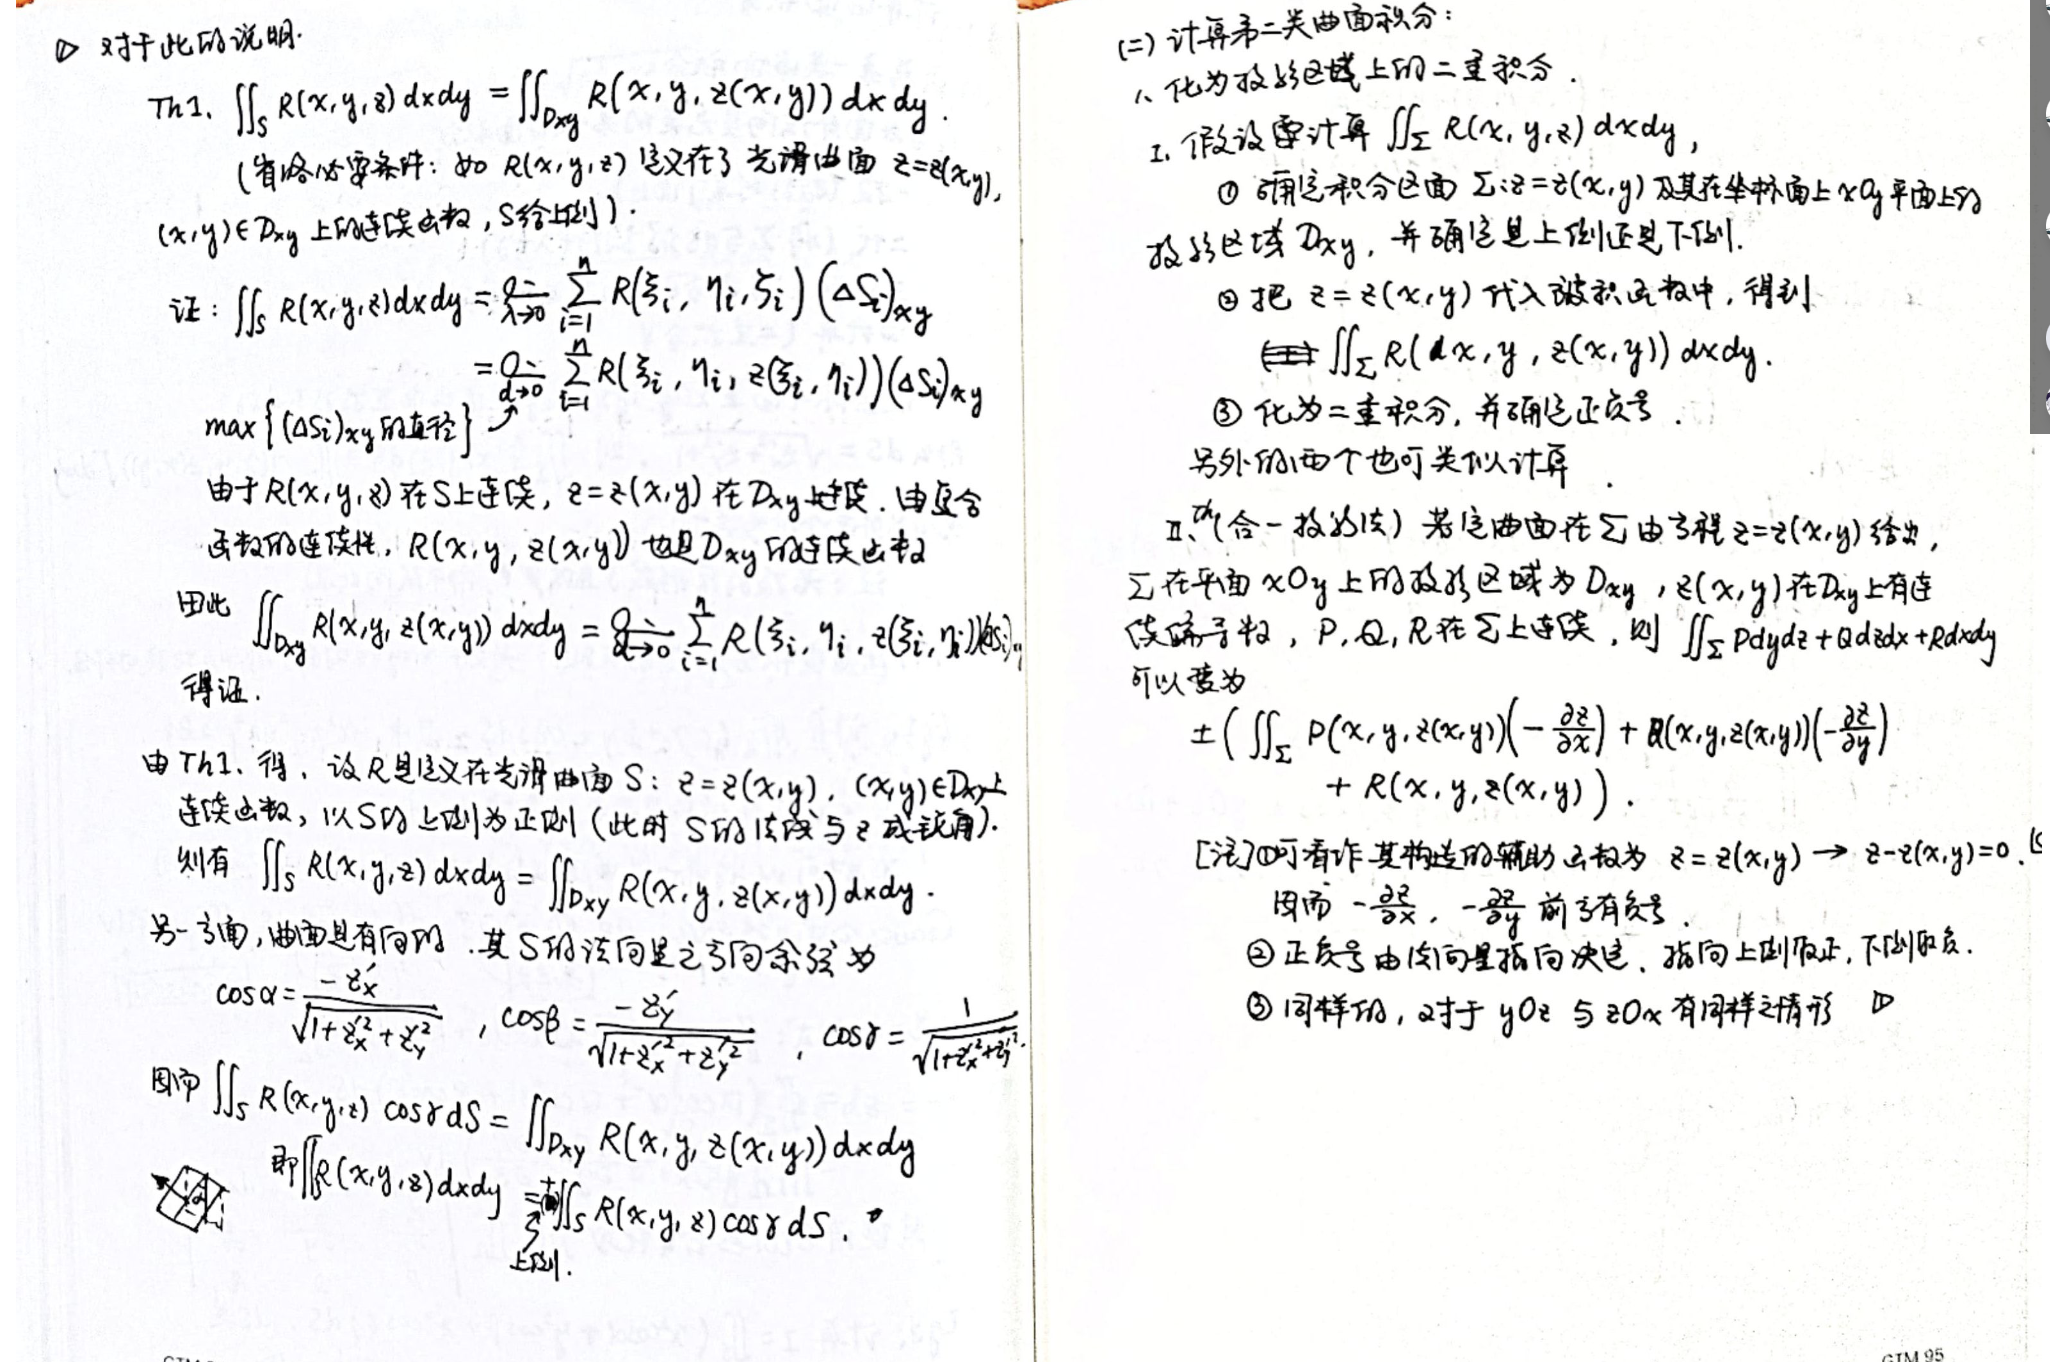 ▷ 对于此的说明.
Th1. ∬_S R(x,y,z) dxdy = ∬_Dxy R(x,y,z(x,y)) dxdy.
(省略必要条件: 如 R(x,y,z) 定义在了光滑曲面 z=z(x,y),
(x,y)∈Dxy 上的连续函数, S给上侧).
证: ∬_S R(x,y,z)dxdy = lim_{λ→0} Σ_{i=1}^{n} R(ξi, ηi, ζi) (ΔSi)xy
= lim_{d→0} Σ_{i=1}^{n} R(ξi, ηi, z(ξi, ηi))(ΔSi)xy
max{(ΔSi)xy的直径}
由于R(x,y,z)在S上连续, z=z(x,y)在Dxy上连续. 由复合
函数的连续性, R(x,y,z(x,y)) 也是Dxy的连续函数
因此 ∬_Dxy R(x,y,z(x,y)) dxdy = lim_{d→0} Σ_{i=1}^{n} R(ξi, ηi, z(ξi, ηi))(ΔSi)xy
得证.
由Th1. 得, 设R是定义在光滑曲面 S: z=z(x,y), (x,y)∈Dxy上
连续函数, 以S的上侧为正侧 (此时 S的法线与z成锐角).
则有 ∬_S R(x,y,z) dxdy = ∬_Dxy R(x,y,z(x,y)) dxdy.
另一方面, 曲面是有向的. 其S的法向量之方向余弦为
cosα = -z'x / √(1+z'x²+z'y²), cosβ = -z'y / √(1+z'x²+z'y²), cosγ = 1 / √(1+z'x²+z'y²).
因而 ∬_S R(x,y,z) cosγ dS = ∬_Dxy R(x,y,z(x,y)) dxdy
即∬_S R(x,y,z) dxdy = + ∬_S R(x,y,z) cosγ dS.
上侧.
(二) 计算第二类曲面积分:
1、化为投影区域上的二重积分.
I. 假设要计算 ∬_Σ R(x,y,z) dxdy,
① 确定积分区面 Σ:z=z(x,y) 及其在坐标面上xOy平面上的
投影区域 Dxy, 并确定是上侧还是下侧.
② 把 z=z(x,y) 代入被积函数中, 得到
∬_Σ R(x,y,z(x,y)) dxdy.
③ 化为二重积分, 并确定正负号.
另外的两个也可类似计算.
II、(合一投影法) 若定曲面在Σ由方程z=z(x,y)给出,
Σ在平面xOy上的投影区域为Dxy, z(x,y)在Dxy上有连
续偏导数, P,Q,R在Σ上连续, 则 ∬_Σ Pdydz+Qdzdx+Rdxdy
可以变为
± ( ∬_Σ P(x,y,z(x,y))(-∂z/∂x) + Q(x,y,z(x,y))(-∂z/∂y)
+ R(x,y,z(x,y)) ).
[注]①可看作其构造的辅助函数为 z=z(x,y) → z-z(x,y)=0.
因而 -∂z/∂x, -∂z/∂y 前方有负号.
② 正负号由法向量指向决定, 指向上侧取正, 下侧取负.
③ 同样的, 对于 yOz 与 zOx 有同样之情形 ▷
GTM 95